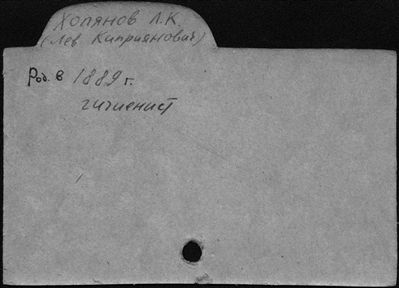 Холянов Л.К.
(Лев Киприянович)
Род. в 1889 г.
гигиенист